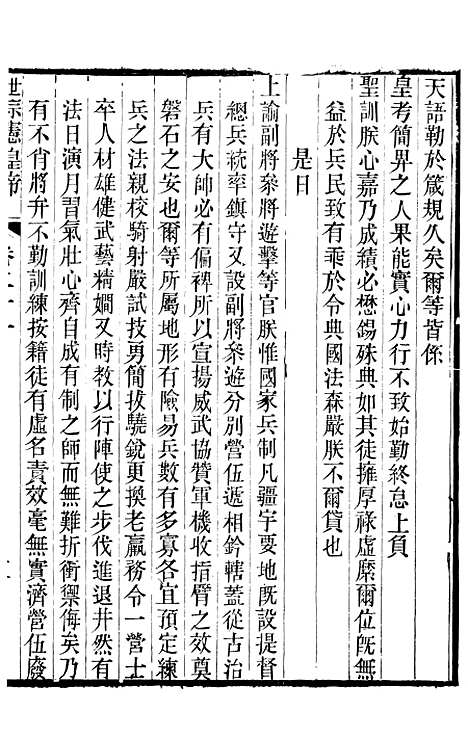 天語勒於箴規久矣爾等皆係
皇考簡界之人果能實心力行不致始勤終怠上負
聖訓朕心嘉乃成績必懋錫殊典如其徒擁厚祿虛縻爾位旣無
益於兵民致有乖於令典國法森嚴朕不爾貸也
是日
上諭副將參將遊擊等官朕惟國家兵制凡疆宇要地旣設提督
總兵統率鎮守又設副將參遊分別營伍遞相鈐轄蓋從古治
兵有大帥必有偏裨所以宣揚威武協贊軍機收指臂之效奠
磐石之安也爾等所屬地形有險易兵數有多寡各宜預定練
兵之法親校騎射嚴試技勇簡拔驍銳更換老羸務令一營士
卒人材雄健武藝精嫺又時教以行陣使之步伐進退井然有
法日演月習氣壯心齊自成有制之師而無難折衝禦侮矣乃
有不肖將弁不勤訓練按籍徒有虛名責效毫無實濟營伍廢
世宗憲皇帝